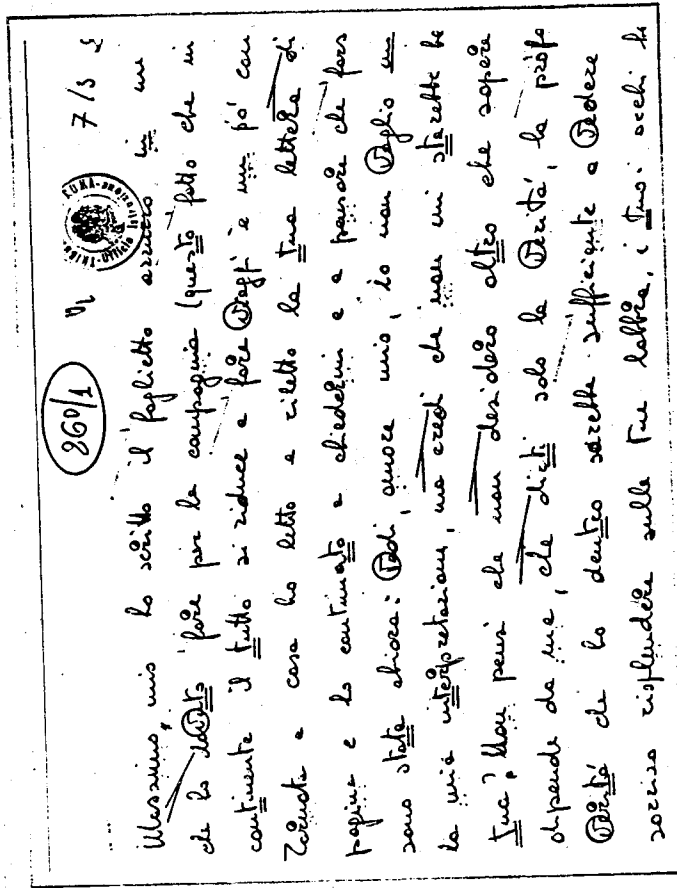 860/1
7/3
ROMA
Massimo, mio ho scritto il foglietto azzurro in un
che ho dovuto fare per la campagna (questo fatto che in
continente il tutto si riduce a fare viaggi è un pó can
Tornata a casa ho letto e riletto la tua lettera di
pagine e ho continuato a chiedermi e a pensare che fors
sono stata chiara: Vedi, amore mio, io non voglio im
la mia interpretazione, ma credi che non mi starebbe be
tua? Non pensi che non desidero altro che sapere
dipende da me, che dirti solo la Verità, la profo
Verità che ho dentro sarebbe sufficiente a Vedere
sorriso risplendere sulle tue labbra, i tuoi occhi h